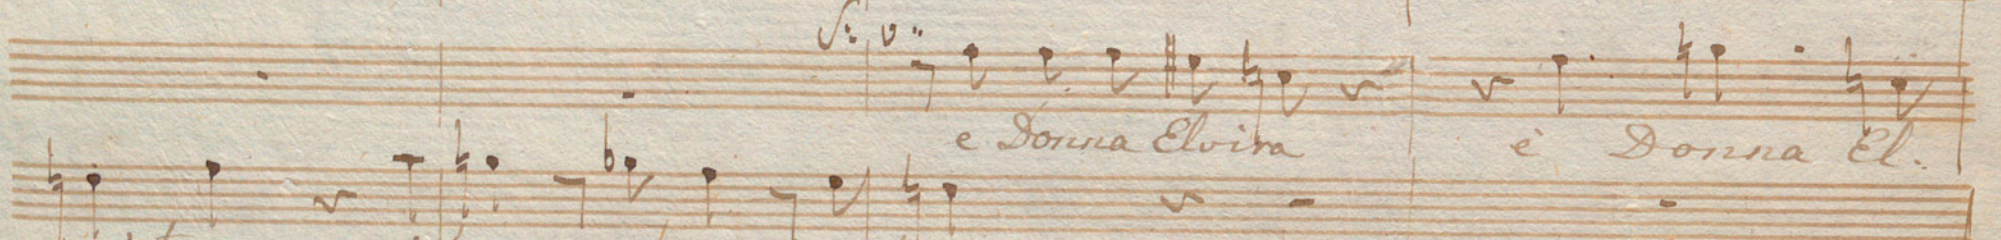 S: v:
e Donna Elvira è Donna El.